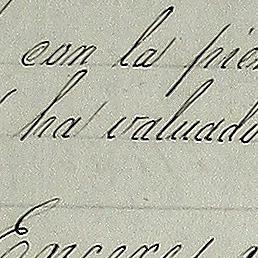 con la pie
ha valuado
Enseres